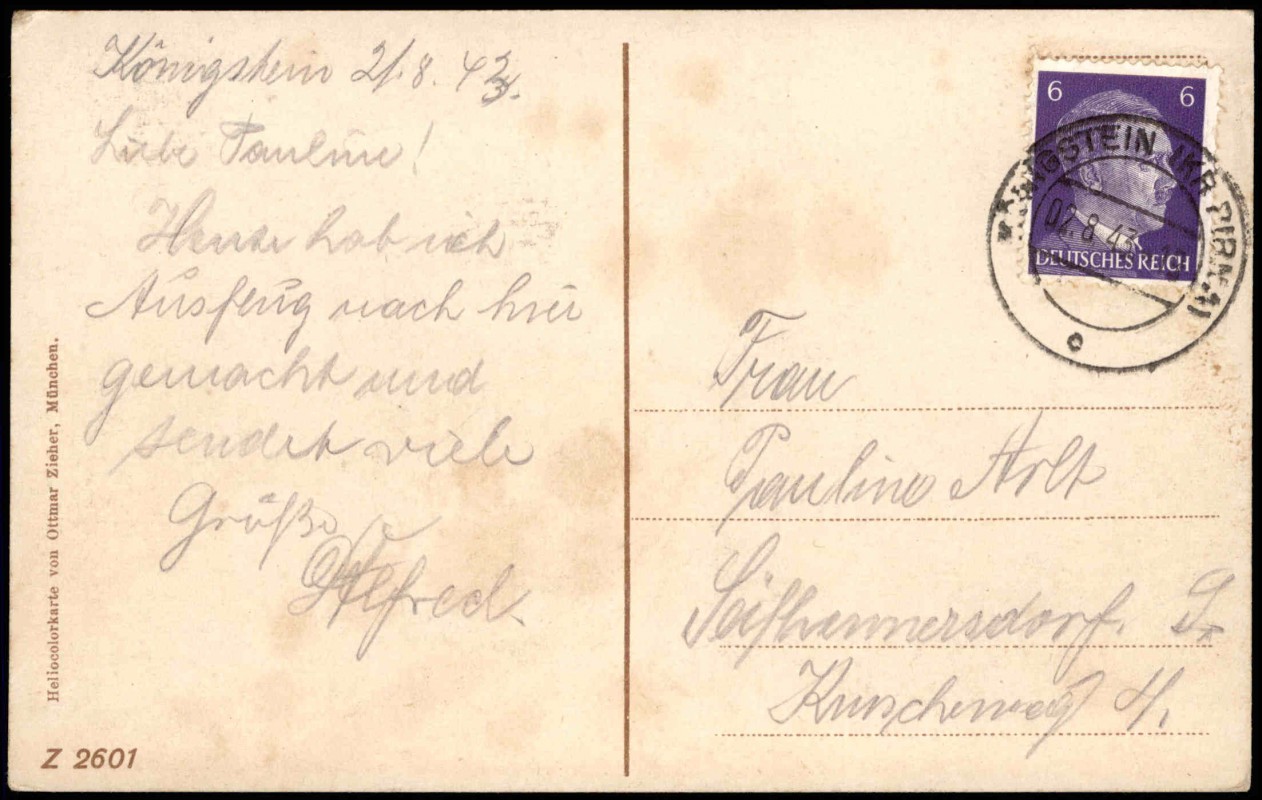 Königstein 2/.8.43.
Liebe Pauline!
Heute hab ich
Ausflug nach hier
gemacht und
sendet viele
Grüße
Alfred.
Heliocolorkarte von Ottmar Zieher, München.
Z 2601
6 6
DEUTSCHES REICH
KÖNIGSTEIN (KR PIRNA)
02.8.43
c
Frau
Pauline Arlt
Seifhennersdorf.